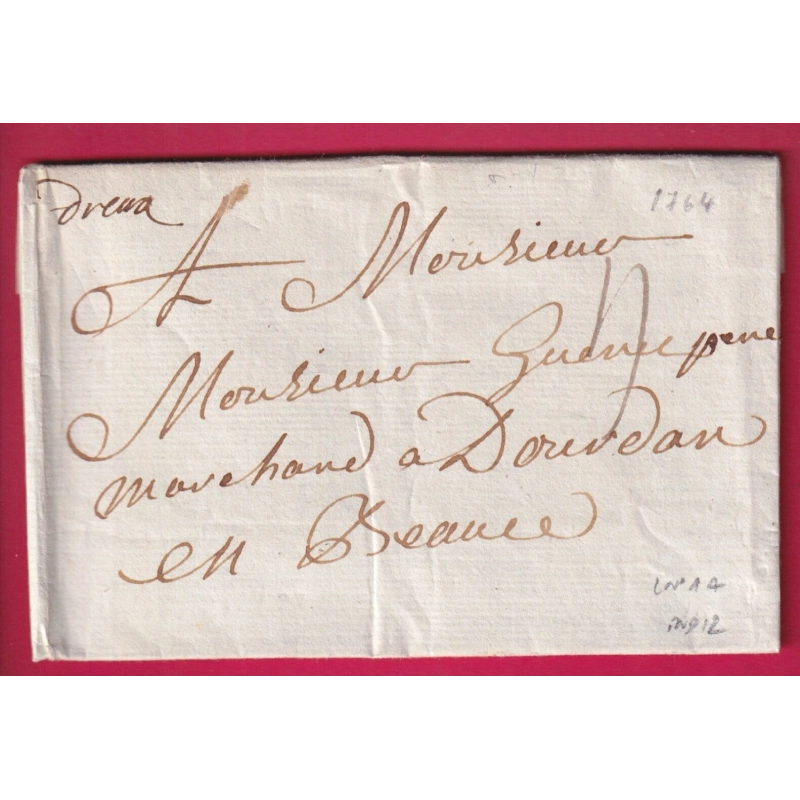 dreux
1764
A Monsieur
Monsieur Guenée pere
marchand a Dourdan
en Beauce
LN°1A
IND12